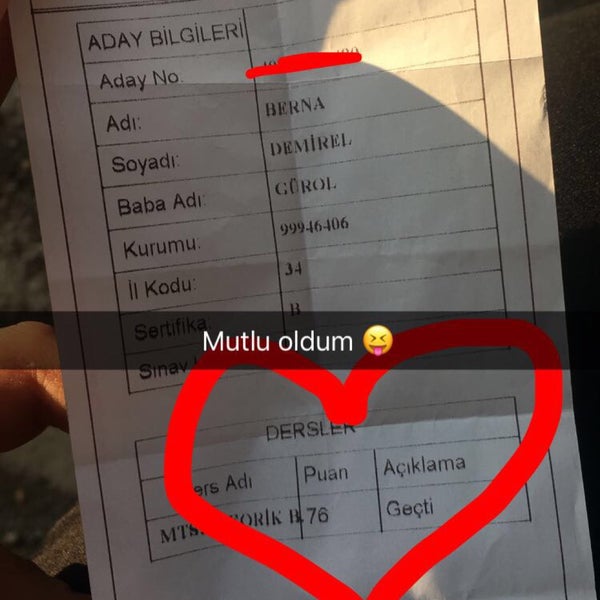 ADAY BİLGİLERİ
Aday No:
Adı: BERNA
Soyadı: DEMİREL
Baba Adı: GÜROL
Kurumu: 99946406
İl Kodu: 34
Sertifika B
Mutlu oldum 😝
Sınav
DERSLER
Adı Puan Açıklama
76 Geçti